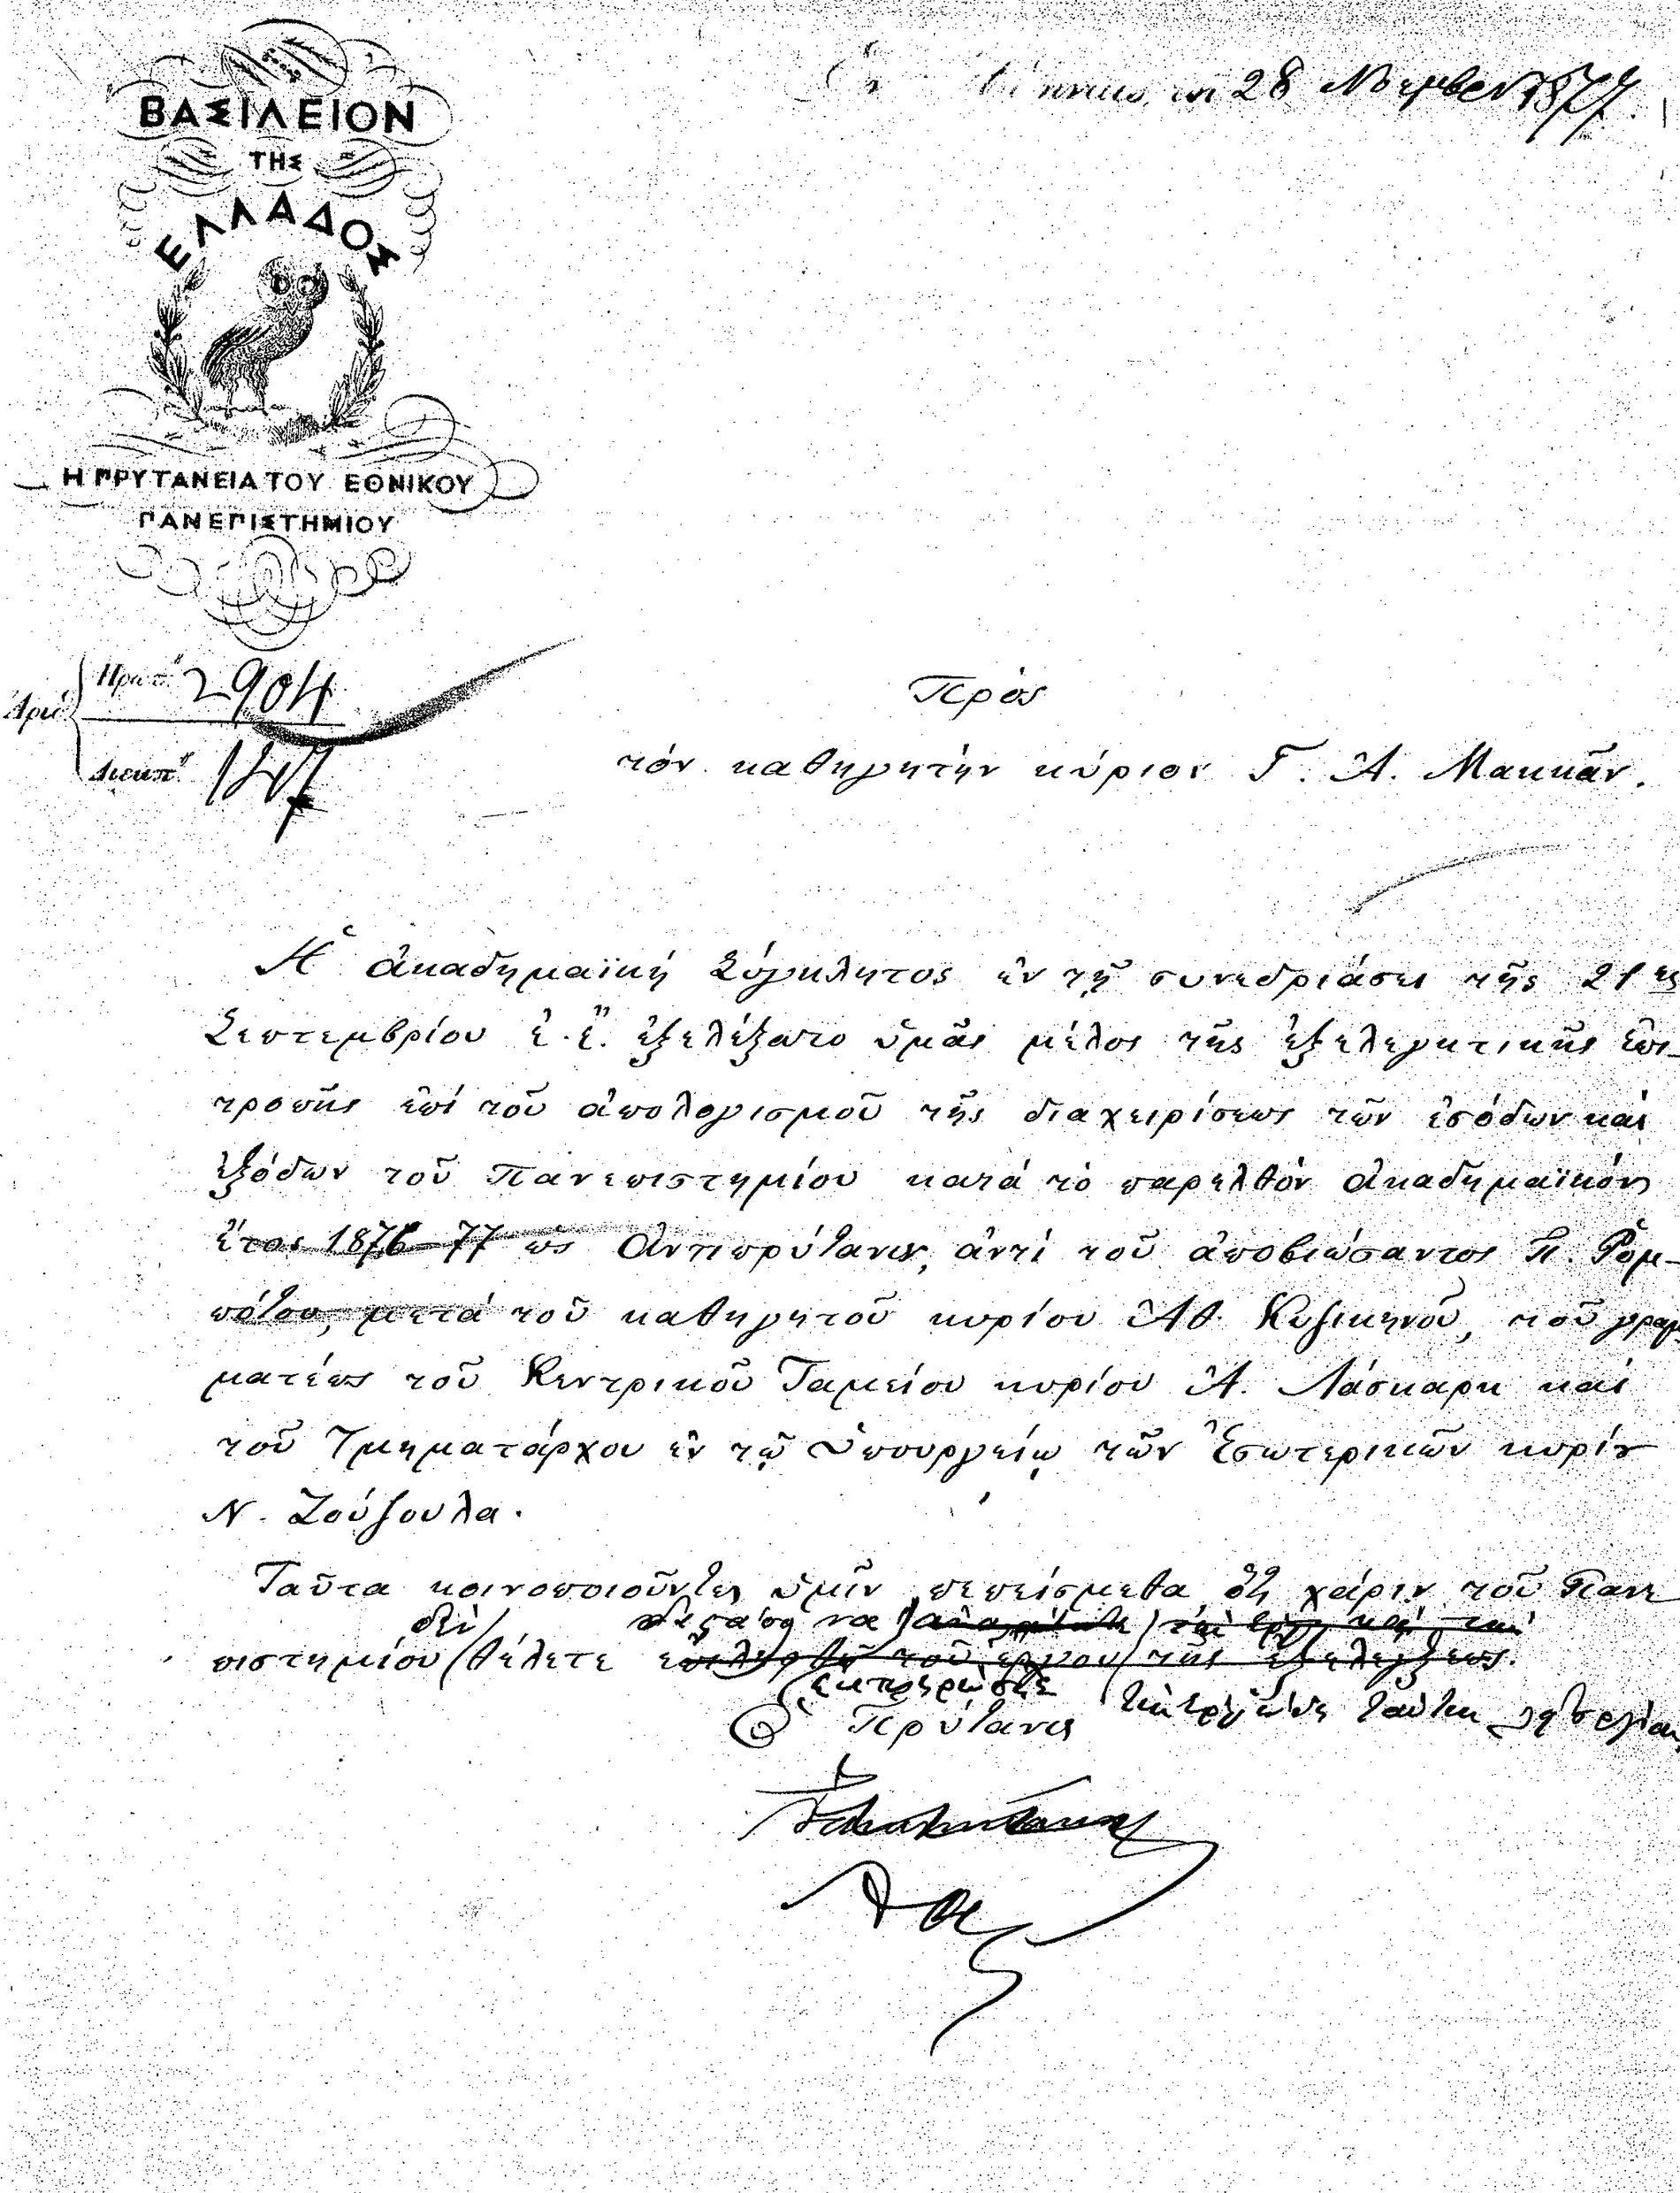 ΒΑΣΙΛΕΙΟΝ
ΤΗΣ
ΕΛΛΑΔΟΣ
28 Νοεμβρ 1877
Η ΠΡΥΤΑΝΕΙΑ ΤΟΥ ΕΘΝΙΚΟΥ
ΠΑΝΕΠΙΣΤΗΜΙΟΥ
Ἀριθ. Πρωτ. 2904
Διεκπ.
Πρὸς
τὸν καθηγητὴν κύριον Γ. Ἀ. Μακκᾶν.
Ἡ ἀκαδημαϊκὴ Σύγκλητος ἐν τῇ συνεδριάσει τῆς 21ης
Σεπτεμβρίου ἐ.ἔ. ἐξελέξατο ὑμᾶς μέλος τῆς ἐξελεγκτικῆς ἐπι-
τροπῆς ἐπὶ τοῦ ἀπολογισμοῦ τῆς διαχειρίσεως τῶν ἐσόδων καὶ
ἐξόδων τοῦ Πανεπιστημίου κατὰ τὸ παρελθὸν ἀκαδημαϊκὸν
ἔτος 1876-77 ὡς Ἀντιπρύτανιν, ἀντὶ τοῦ ἀποβιώσαντος Π. Ῥομ-
πότου, μετὰ τοῦ καθηγητοῦ κυρίου Ἀθ. Κυζικηνοῦ, τοῦ γραμ
ματέως τοῦ Κεντρικοῦ Ταμείου κυρίου Ἀ. Λάσκαρη καὶ
τοῦ Τμηματάρχου ἐν τῷ Ὑπουργείῳ τῶν Ἐσωτερικῶν κυρίου
Ν. Ζούζουλα.
Ταῦτα κοινοποιοῦντες ὑμῖν πεπείσμεθα ὅτι χάριν τοῦ Πανε
να
πιστημίου θέλετε ἐπιληφθῆ τοῦ ἔργου τῆς ἐξελέγξεως.
Ὁ Πρύτανις ταύτην